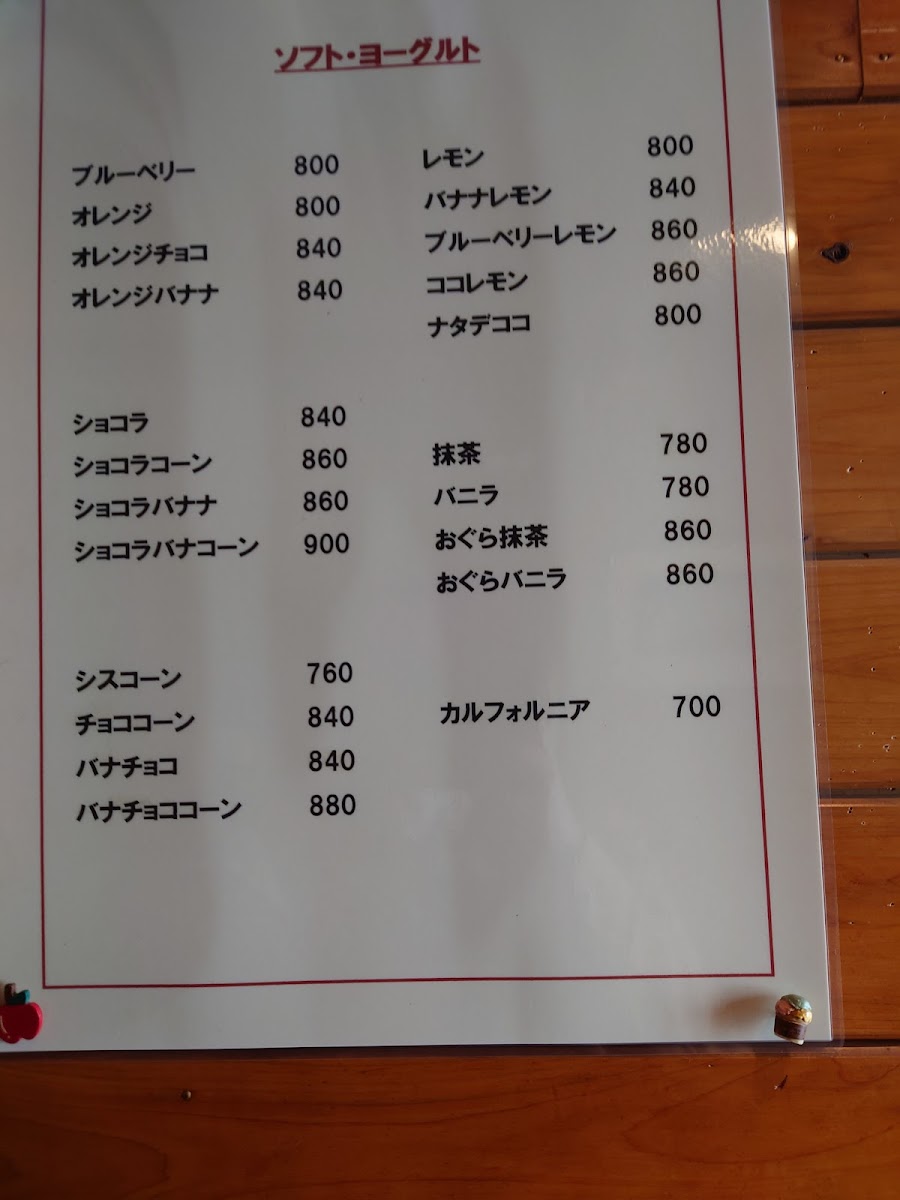 ソフト・ヨーグルト
ブルーベリー 800
オレンジ 800
オレンジチョコ 840
オレンジバナナ 840
レモン 800
バナナレモン 840
ブルーベリーレモン 860
ココレモン 860
ナタデココ 800
ショコラ 840
ショコラコーン 860
ショコラバナナ 860
ショコラバナコーン 900
抹茶 780
バニラ 780
おぐら抹茶 860
おぐらバニラ 860
シスコーン 760
チョココーン 840
バナチョコ 840
バナチョココーン 880
カルフォルニア 700